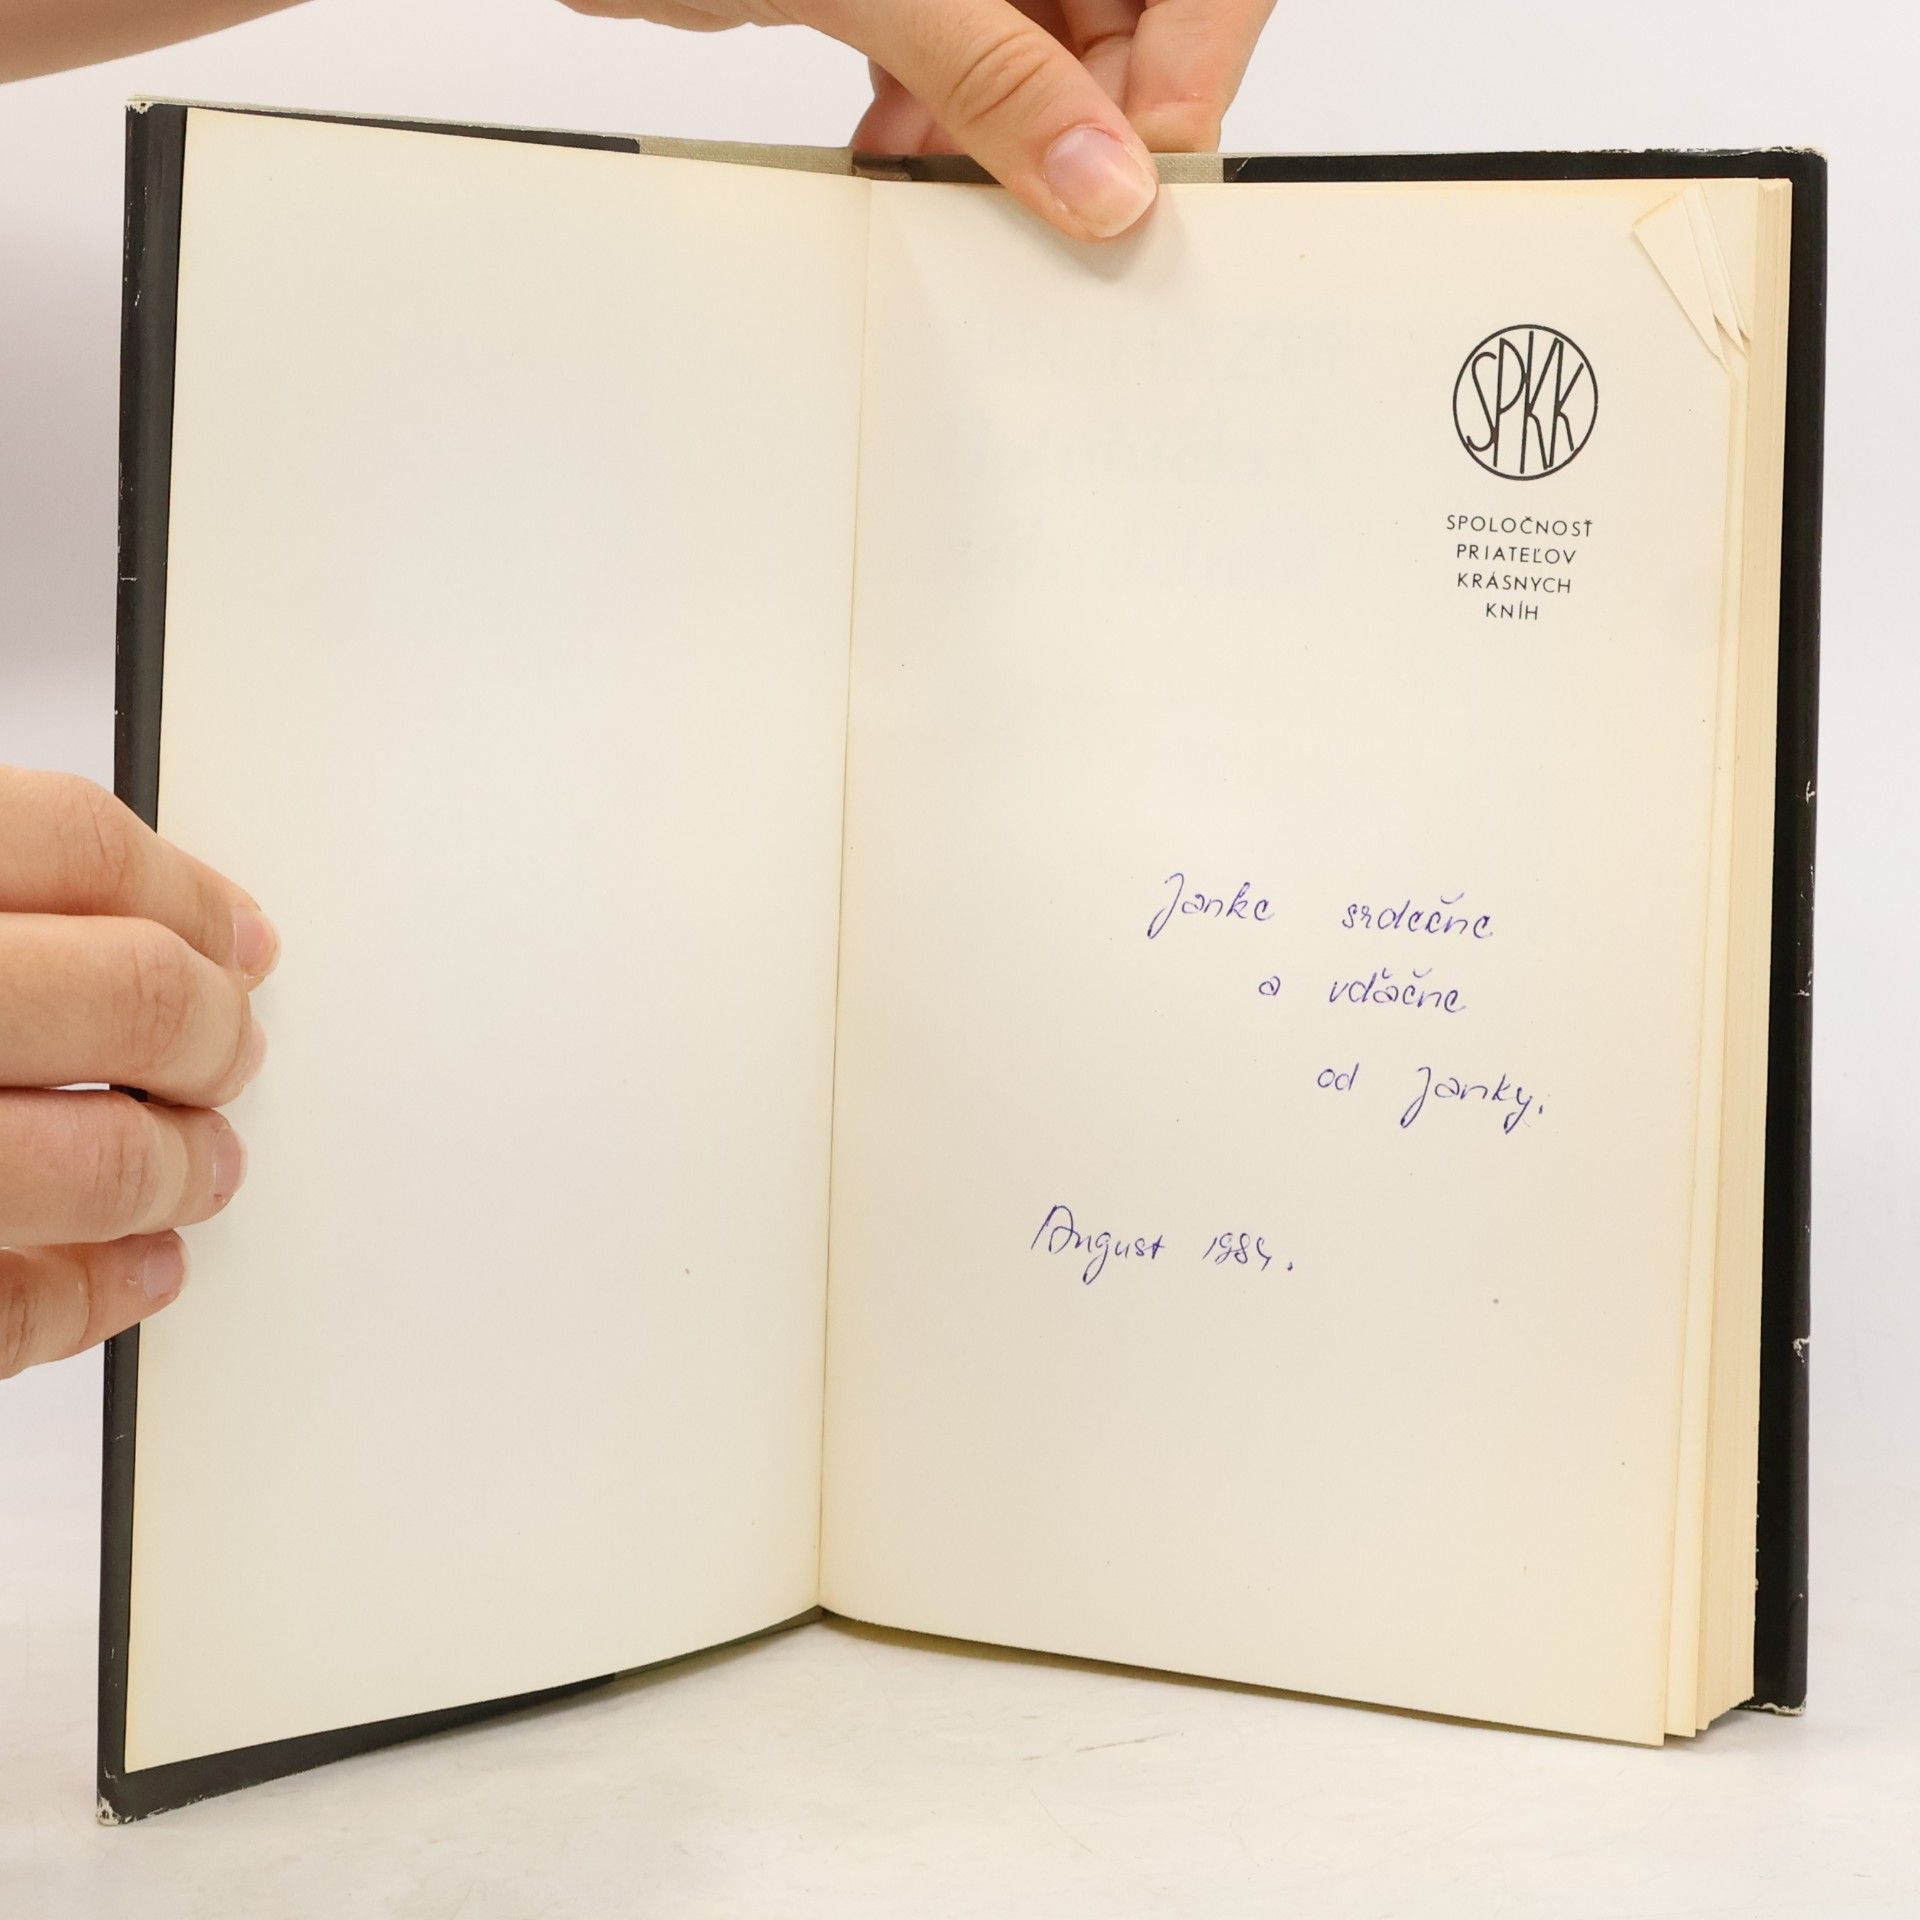 SPKK
SPOLOČNOSŤ
PRIATEĽOV
KRÁSNYCH
KNÍH
Janke srdečne
a vďačne
od Janky.
August 1984.